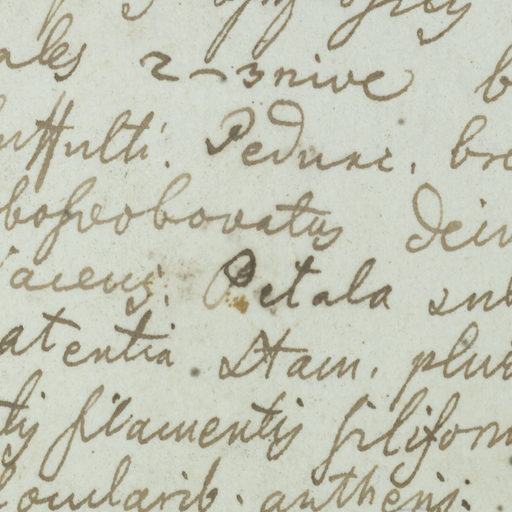 ales 2-3nive b
uffulti. Pedunc. bre
bosveobovatus dein
iacens. Petala sub
atentia Stam. plur
tis filamentis filiform
locularib. antheris.